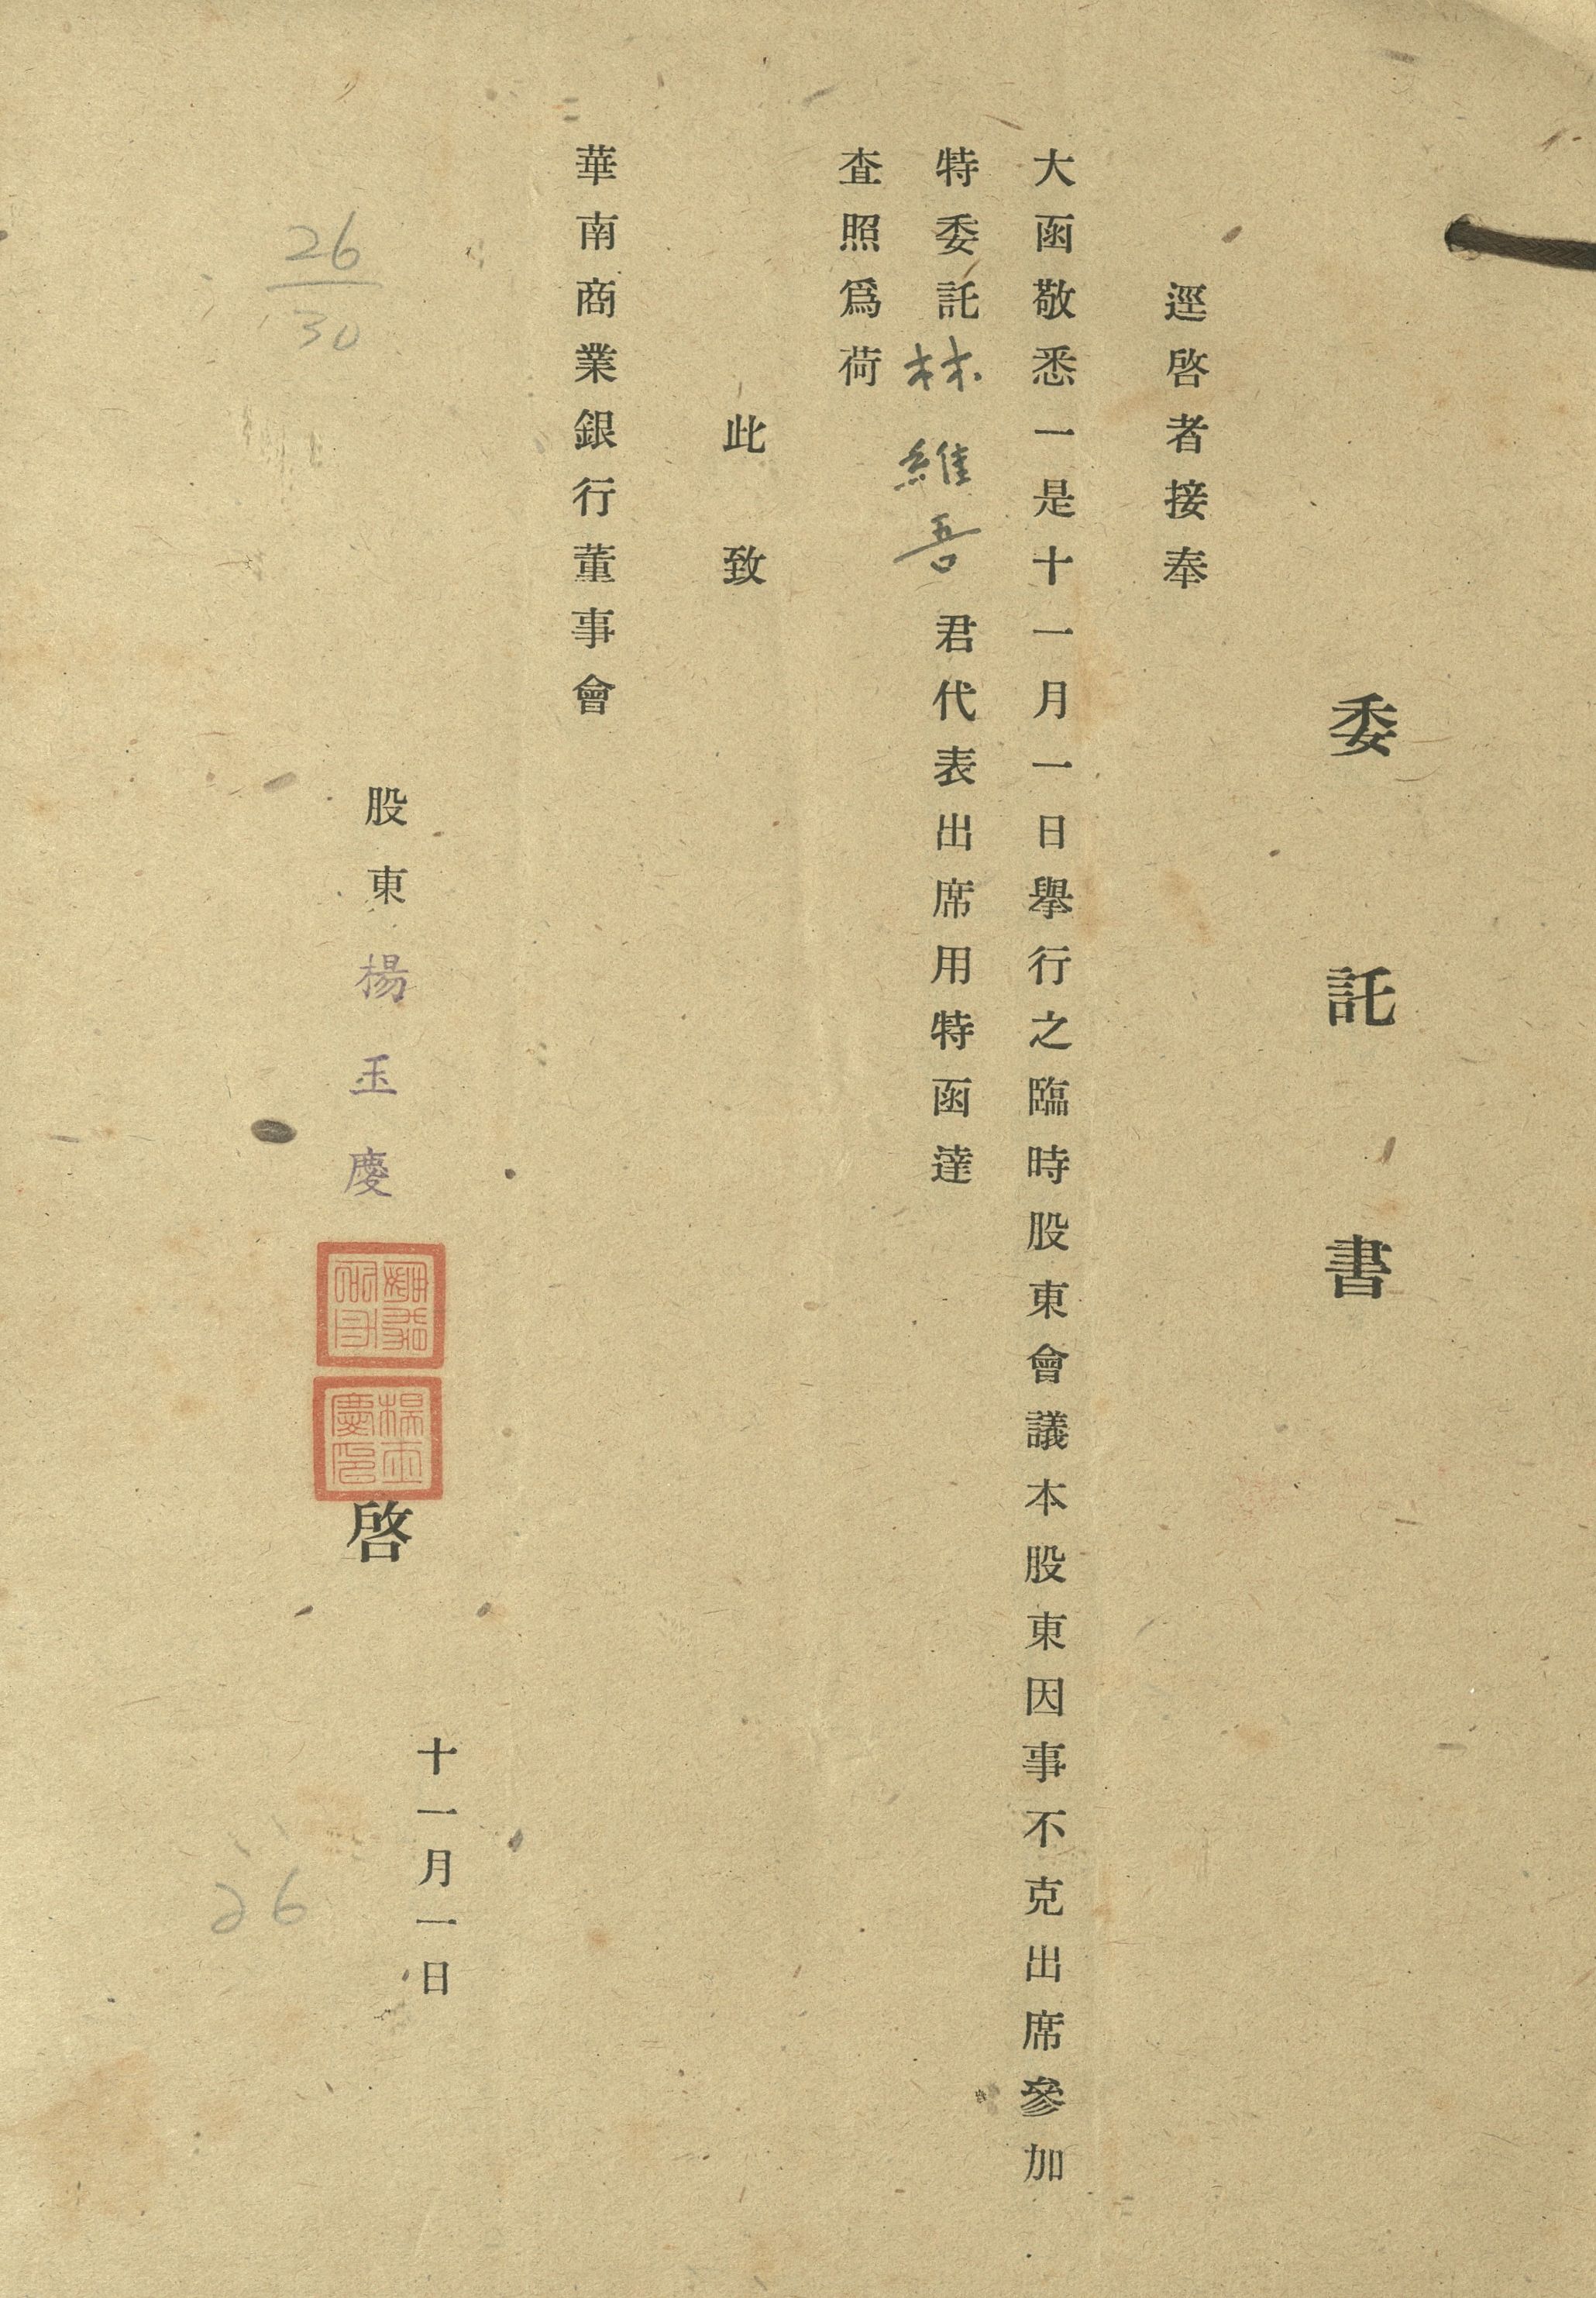 委託書
逕啓者接奉
大函敬悉一是十一月一日舉行之臨時股東會議本股東因事不克出席參加
特委託林維吾君代表出席用特函達
查照爲荷
此致
華南商業銀行董事會
股東楊玉慶啓
楊玉慶印
十一月一日
26
30
26